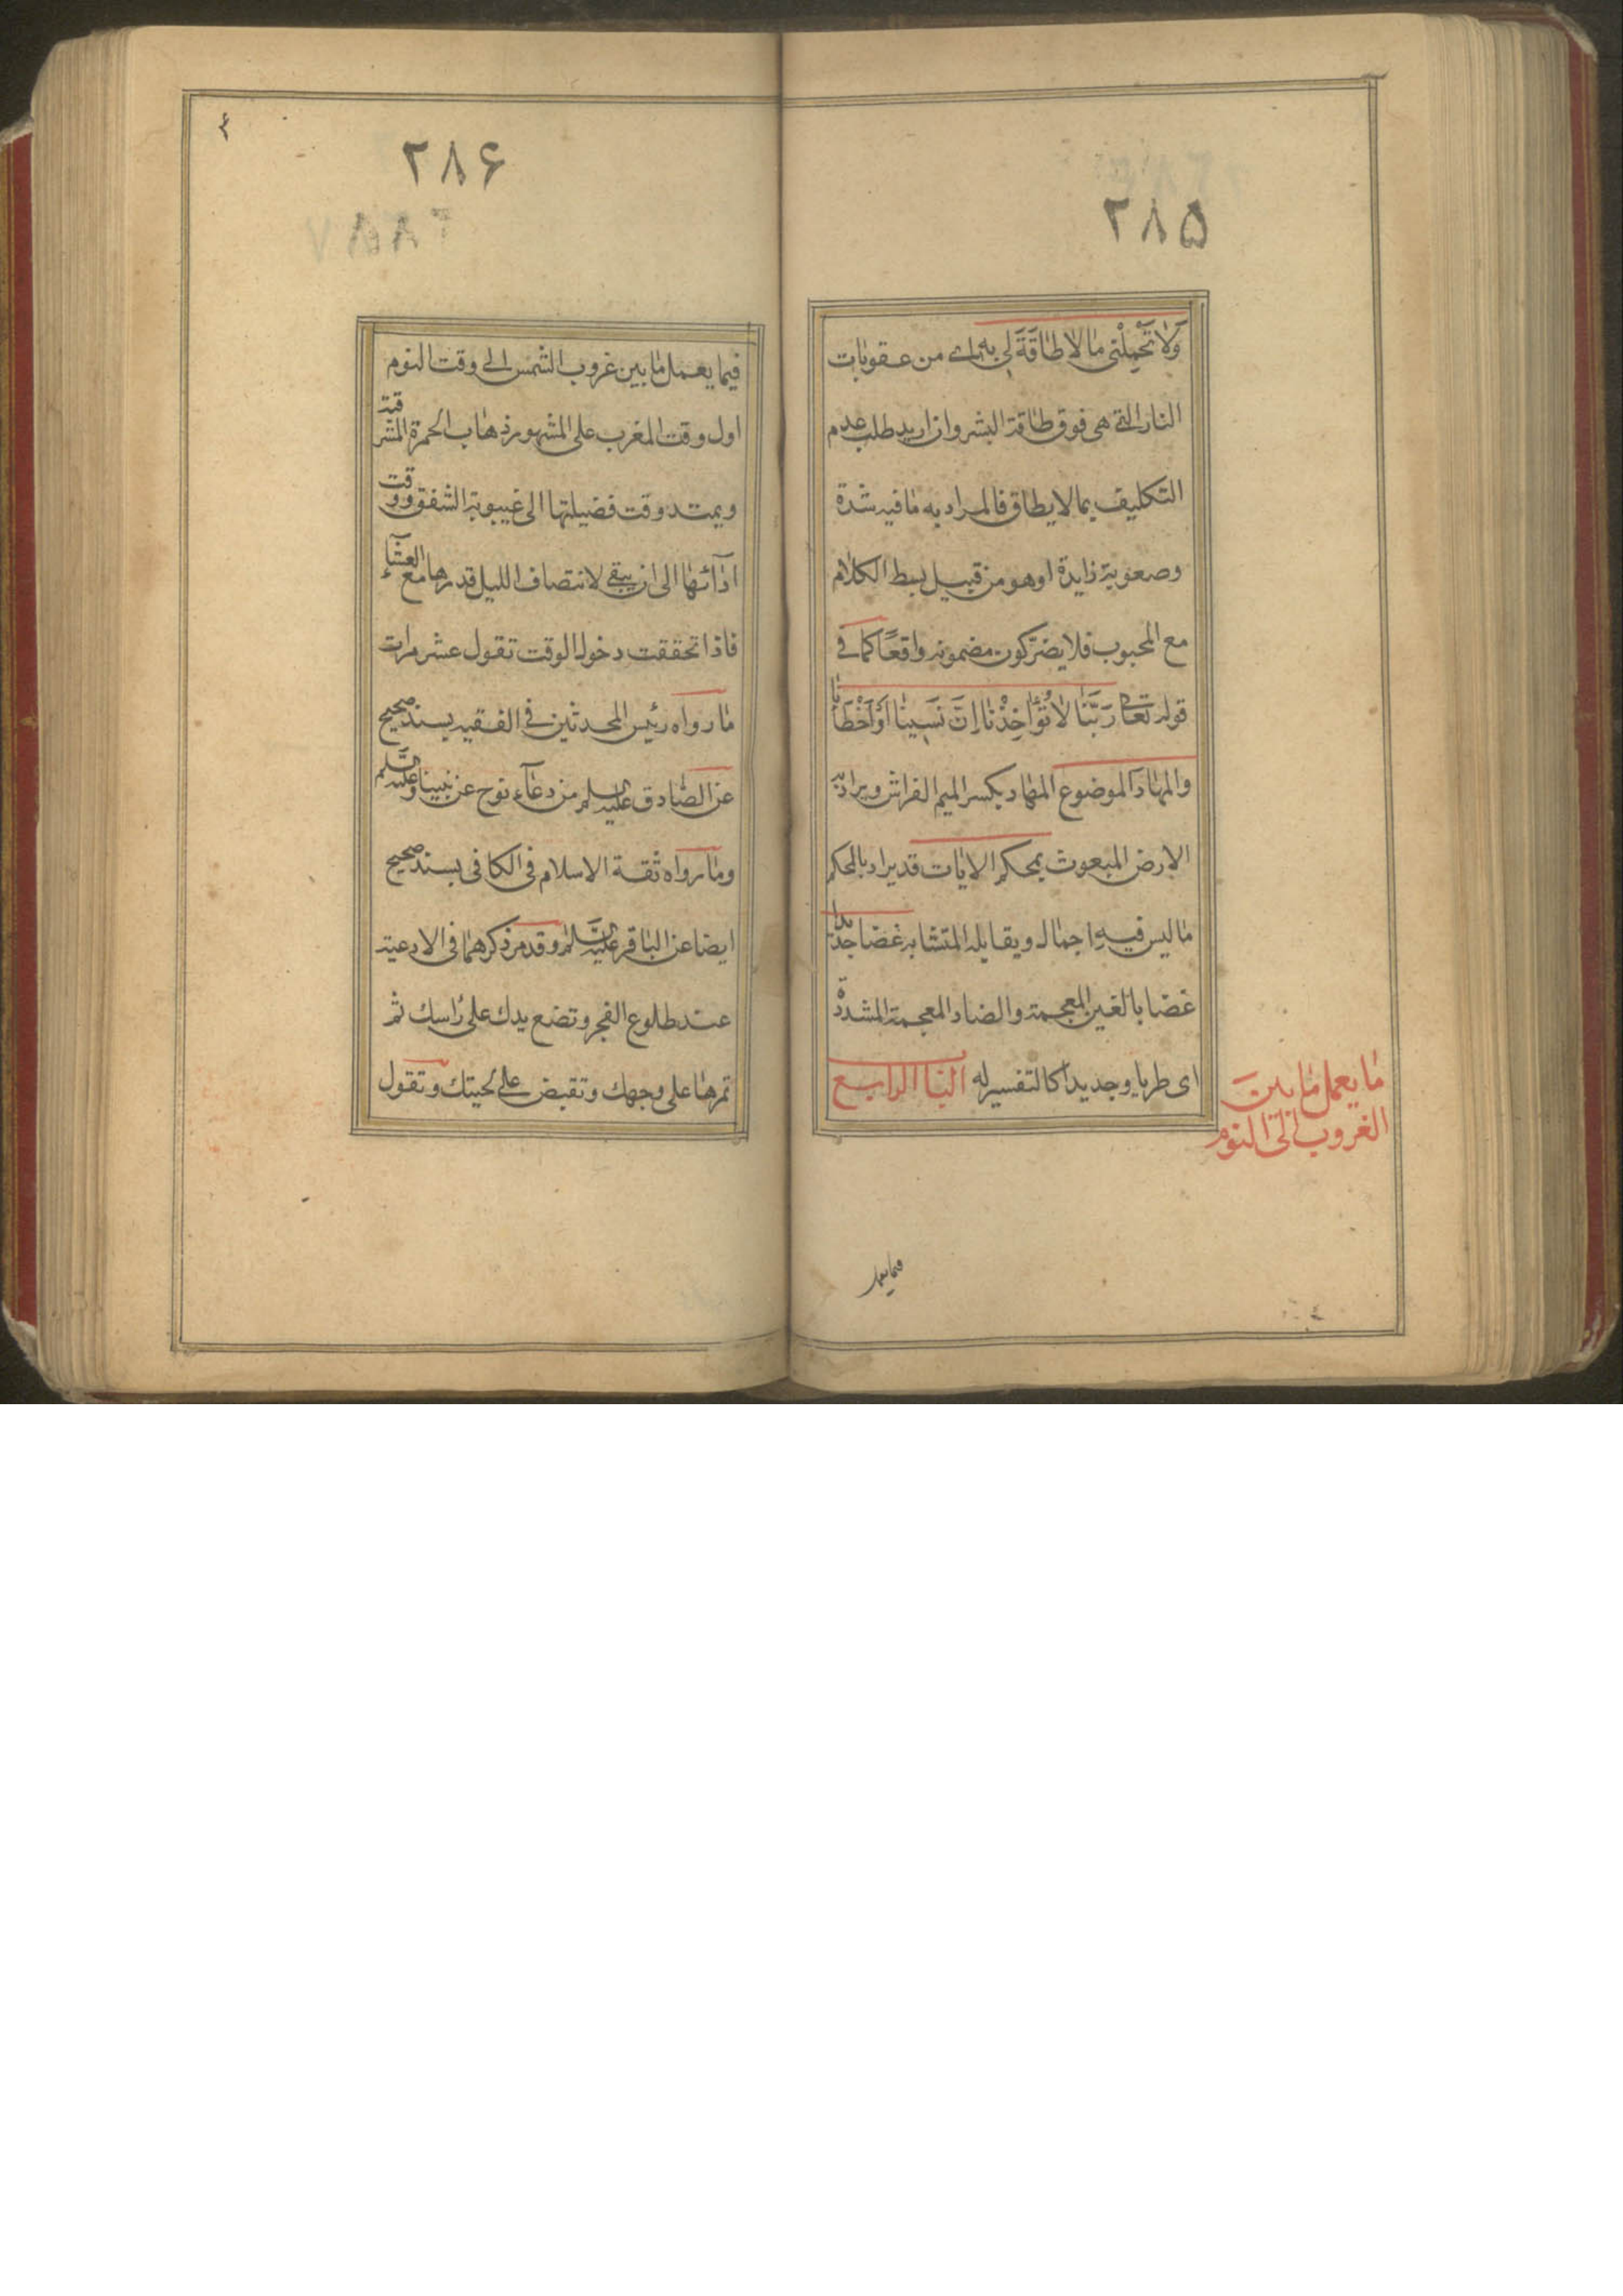 ٢٨۵
وَلا تُحَمِّلْنى ما لا طاقَةَ لى به اے من عقوبات
النار التے هى فوق طاقة البشر وان اريد طلب عدم
التكليف بما لا يطاق فالمراد به ما فيه شدة
وصعوبة زايدة او هو من قبيل بسط الكلام
مع المحبوب فلا يضرّ كون مضمونه واقعًا كما فے
قوله تعالى رَبَّنا لا تُؤاخِذْنا اِنْ نَسينا اَوْ اَخْطَأنا
والمهاد الموضوع المهاد بكسر الميم الفراش ويراد به
الارض المبعوث بمحكم الايات قد يراد بالمحكم
ما ليس فيه اجمال ويقابله المتشابه غضا جديدا
غضا بالغين المعجمة والضاد المعجمة المشددة
اى طريا وجديدا كالتفسير له الباب الرابع
ما يعمل ما بين
الغروب الى النوم
فيما يعمل
٢٨۶
فيما يعمل ما بين غروب الشمس الے وقت النوم
اول وقت المغرب على المشهور ذهاب الحمرة المشرقية
ويمتد وقت فضيلتها الى غيبوبة الشفق ووقت
ادائها الى ان يبقے لانتصاف الليل قدرها مع العشاء
فاذا تحققت دخول الوقت تقول عشر مرات
ما رواه رئيس المحدثين فے الفقيه بسند صحيح
عن الصادق عليه السلم من دعاء نوح عن نبينا وعليه السلم
وما رواه ثقة الاسلام فى الكافى بسند صحيح
ايضا عن الباقر عليه السلم وقد مر ذكرهما فى الادعية
عند طلوع الفجر وتضع يدك على راسك ثم
تمرها على وجهك وتقبض علے لحيتك وتقول